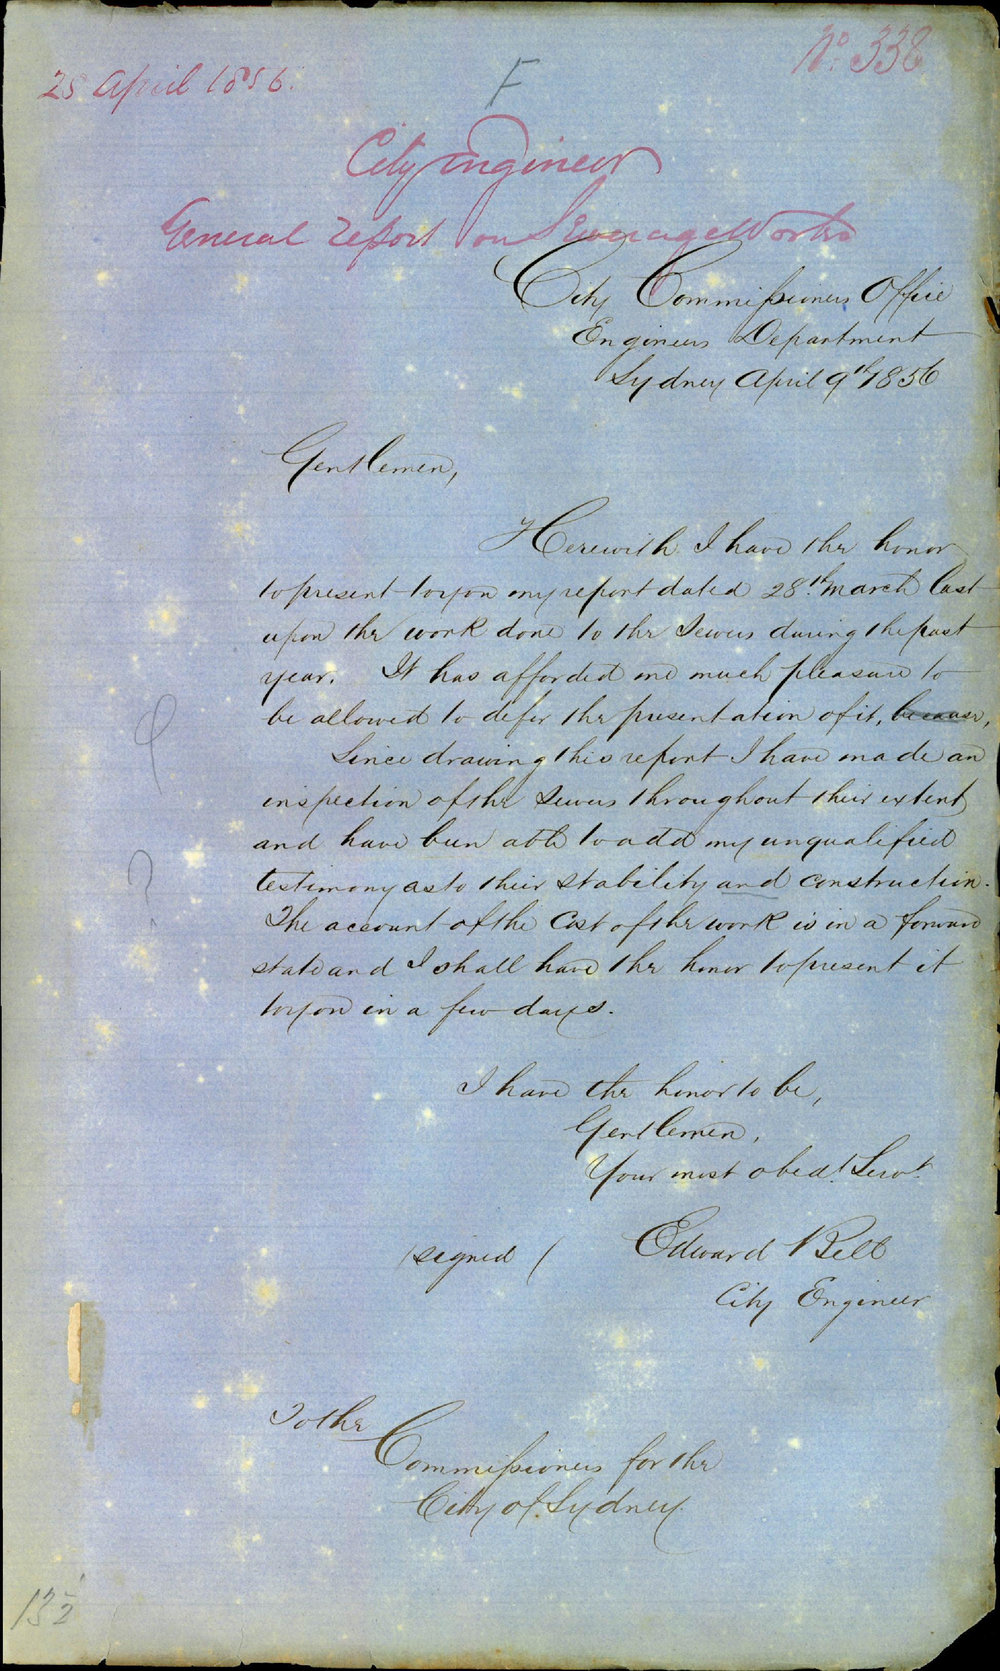 No. 338
28 April 1856.
F
City Engineer
General report on Sewerage Works
City Commissioners Office
Engineers Department
Sydney April 9th 1856
Gentlemen,
Herewith I have the honor
to present to you my report dated 28th. March last
upon the work done to the Sewers during the past
year. It has afforded me much pleasure to
be allowed to defer the presentation of it, because,
Since drawing this report I have made an
inspection of the Sewers throughout their extent
and have been able to add my unqualified
testimony as to their stability and construction.
The account of the Cost of the work is in a forward
state and I shall have the honor to present it
to you in a few days.
I have the honor to be,
Gentlemen,
Your most obedt. Servt.
(signed) Edward Bell
City Engineer
To the
Commissioners for the
City of Sydney.